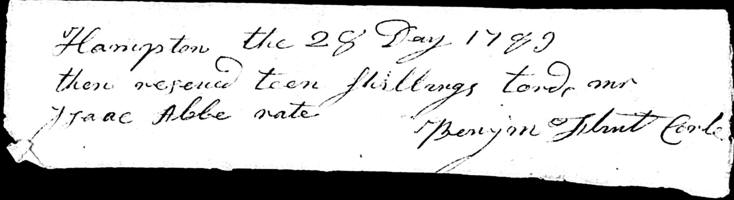 Hampton the 28 Day 1789
then reseued teen shillings tords mr
Isaac Abbe rate
Benjmn Flint Corle